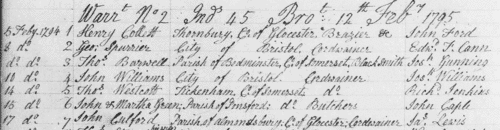 Warr.t No 2 Ind.s 45 Bro.t 12th Feb.y 1795
5 Feby. 1794 1 Henry Collett Thornbury, C.o of Glocester Brazier &c John Ford
8 d.o 2 Geo. Spurrier City of Bristol Cordwainer Edw.d F. Cann
d.o d.o 3 Tho.s Barwell Parish of Bedminster, C.o of Somerset, Black Smith Jos. Gunning
10 d.o 4 John Williams City of Bristol Cordwainer Jos. Williams
14 d.o 5 Tho.s Westcott Tickenham, C.o of Somerset d.o Rich.d Jenkins
16 d.o 6 John & Martha Green; Parish of d.o Butchers John Caple
17 d.o 7 John Parish of Almondsbury, C.o of Glocester; Cordwainer Ja.s Lewis